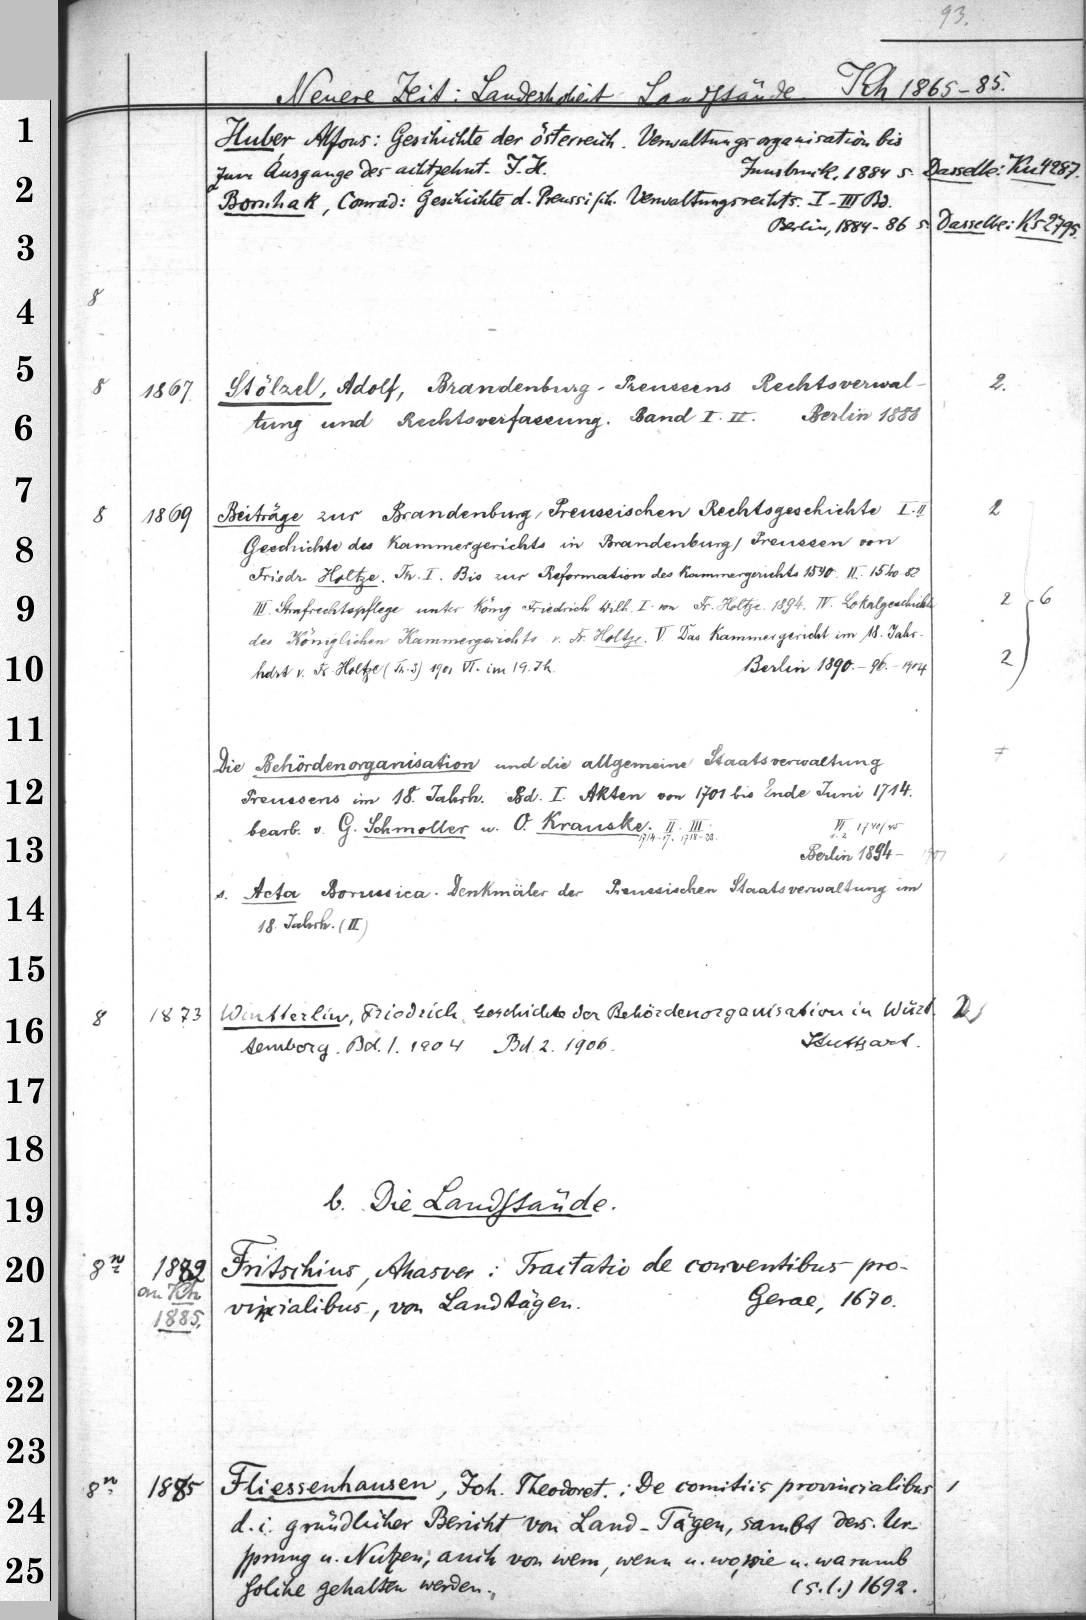 93.
Neuere Zeit: Landeshoheit Landstände. Kh 1865-85.
1
Huber Alfons: Geschichte der österreich. Verwaltungsorganisation bis
2
zum Ausgange des achtzehnt. J. H. Innsbruck, 1884 s. Dasselbe: Ku 4287.
Bornhak, Conrad: Geschichte d. Preussisch. Verwaltungsrechts. I-III Bd.
3
Berlin, 1884-86 s. Dasselbe: Ks 2795.
4
8
5
8 1867 Stölzel, Adolf, Brandenburg-Preussens Rechtsverwal- 2.
6
tung und Rechtsverfassung. Band I. II. Berlin 1888
7
8 1869 Beiträge zur Brandenburg, Preussischen Rechtsgeschichte I.II 2
8
Geschichte des Kammergerichts in Brandenburg, Preussen von
Friedr. Holtze. Th. I. Bis zur Reformation des Kammergerichts 1540. II. 1540
9
III. Strafrechtspflege unter König Friedrich Wilh. I. von Fr. Holtze. 1894. IV. Lokalgeschichte 2 6
des Königlichen Kammergerichts v. Fr. Holtze. V. Das Kammergericht im 18. Jahr-
10
hdrt v. Fr. Holtze (Th. 3) 1901 VI. im 19. Jh. Berlin 1890.-96.-1904 2
11
Die Behördenorganisation und die allgemeine Staatsverwaltung 7
12
Preussens im 18. Jahrh. Bd. I. Akten von 1701 bis Ende Juni 1714.
bearb. v. G. Schmoller u. O. Krauske. II. III. VI. 1740/45
1714-17.
13
Berlin 1894-
s. Acta Borussica. Denkmäler der Preussischen Staatsverwaltung im
14
18. Jahrh. (II)
15
8 1873 Wintterlin, Friedrich, Geschichte der Behördenorganisation in Würt- 2
16
temberg. Bd. 1. 1904 Bd. 2. 1906. Stuttgart.
17
18
19
b. Die Landstände.
20
8n 1882 Fritschius, Ahasver: Tractatio de conventibus pro-
an Kh
vincialibus, von Landtägen. Gerae, 1670.
1885.
21
22
23
8n 1885 Fliessenhausen, Joh. Theodoret.: De comitiis provincialibus 1
24
d. i. gründlicher Bericht von Land-Tägen, sambt ders. Ur-
sprung u. Nutzen; auch von wem, wenn u. wo, wie u. warumb
25
solche gehalten werden. (s. l.) 1692.